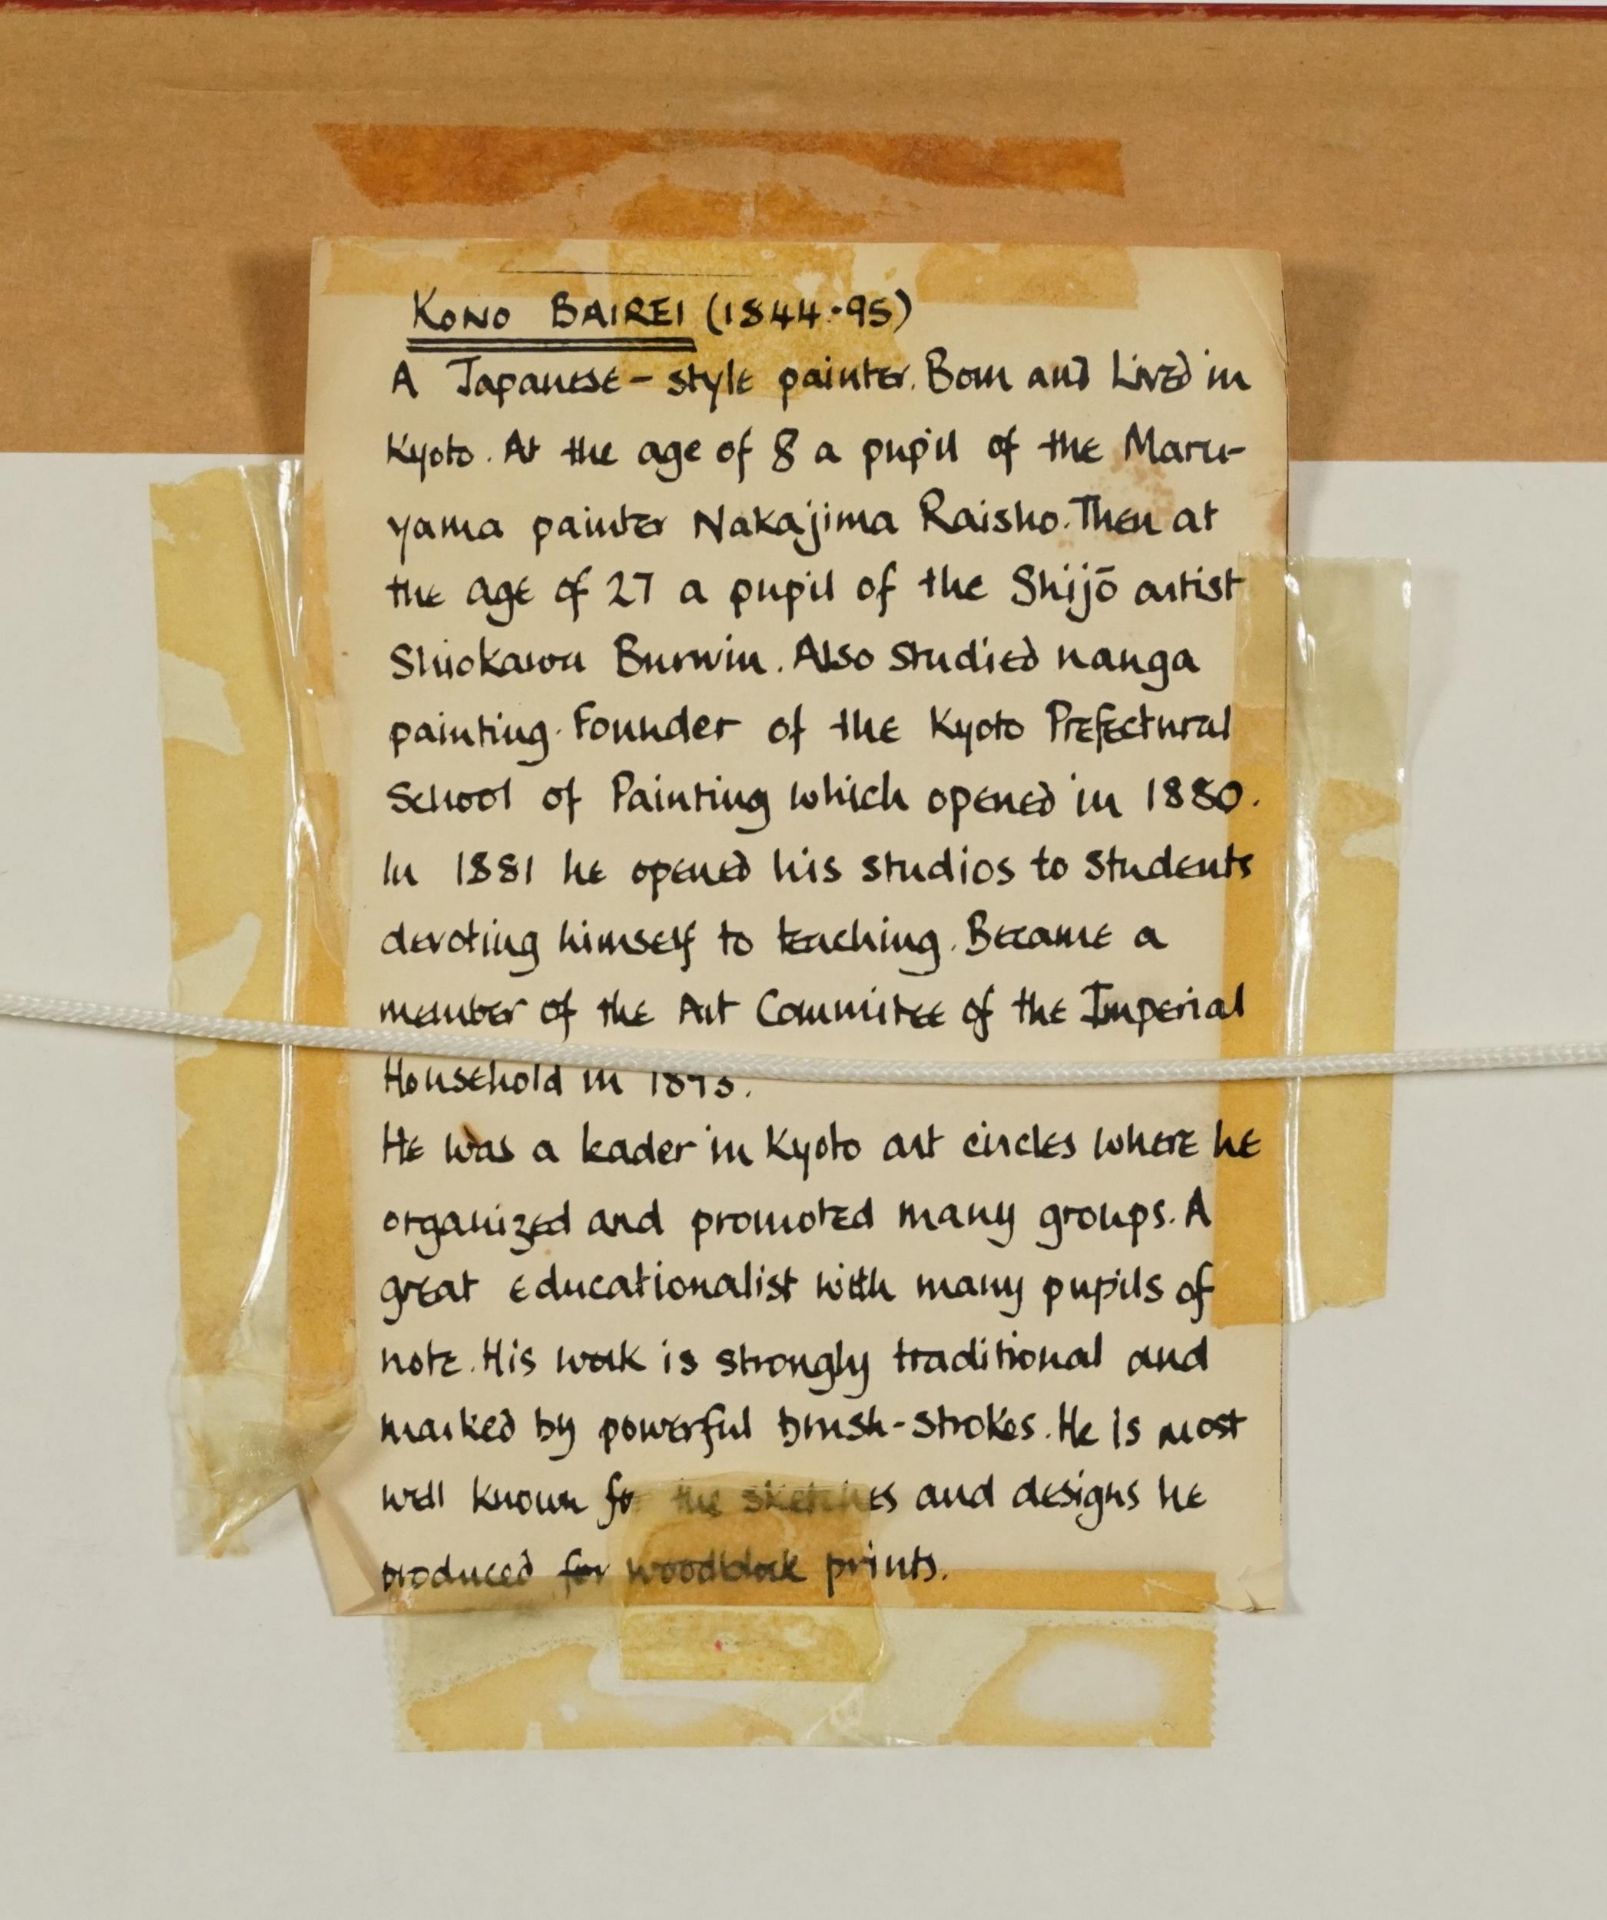 KONO BAIREI (1844-95)
A Japanese-style painter. Born and Lived in
Kyoto. At the age of 8 a pupil of the Maru-
yama painter Nakajima Raisho. Then at
the age of 27 a pupil of the Shijō artist
Shiokawa Bunrin. Also studied nanga
painting. Founder of the Kyoto Prefectural
School of Painting which opened in 1880.
In 1881 he opened his studios to students
devoting himself to teaching. Became a
member of the Art Committee of the Imperial
Household in 1893.
He was a leader in Kyoto art circles where he
organized and promoted many groups. A
great educationalist with many pupils of
note. His work is strongly traditional and
marked by powerful brush-strokes. He is most
well known for the sketches and designs he
produced for woodblock prints.